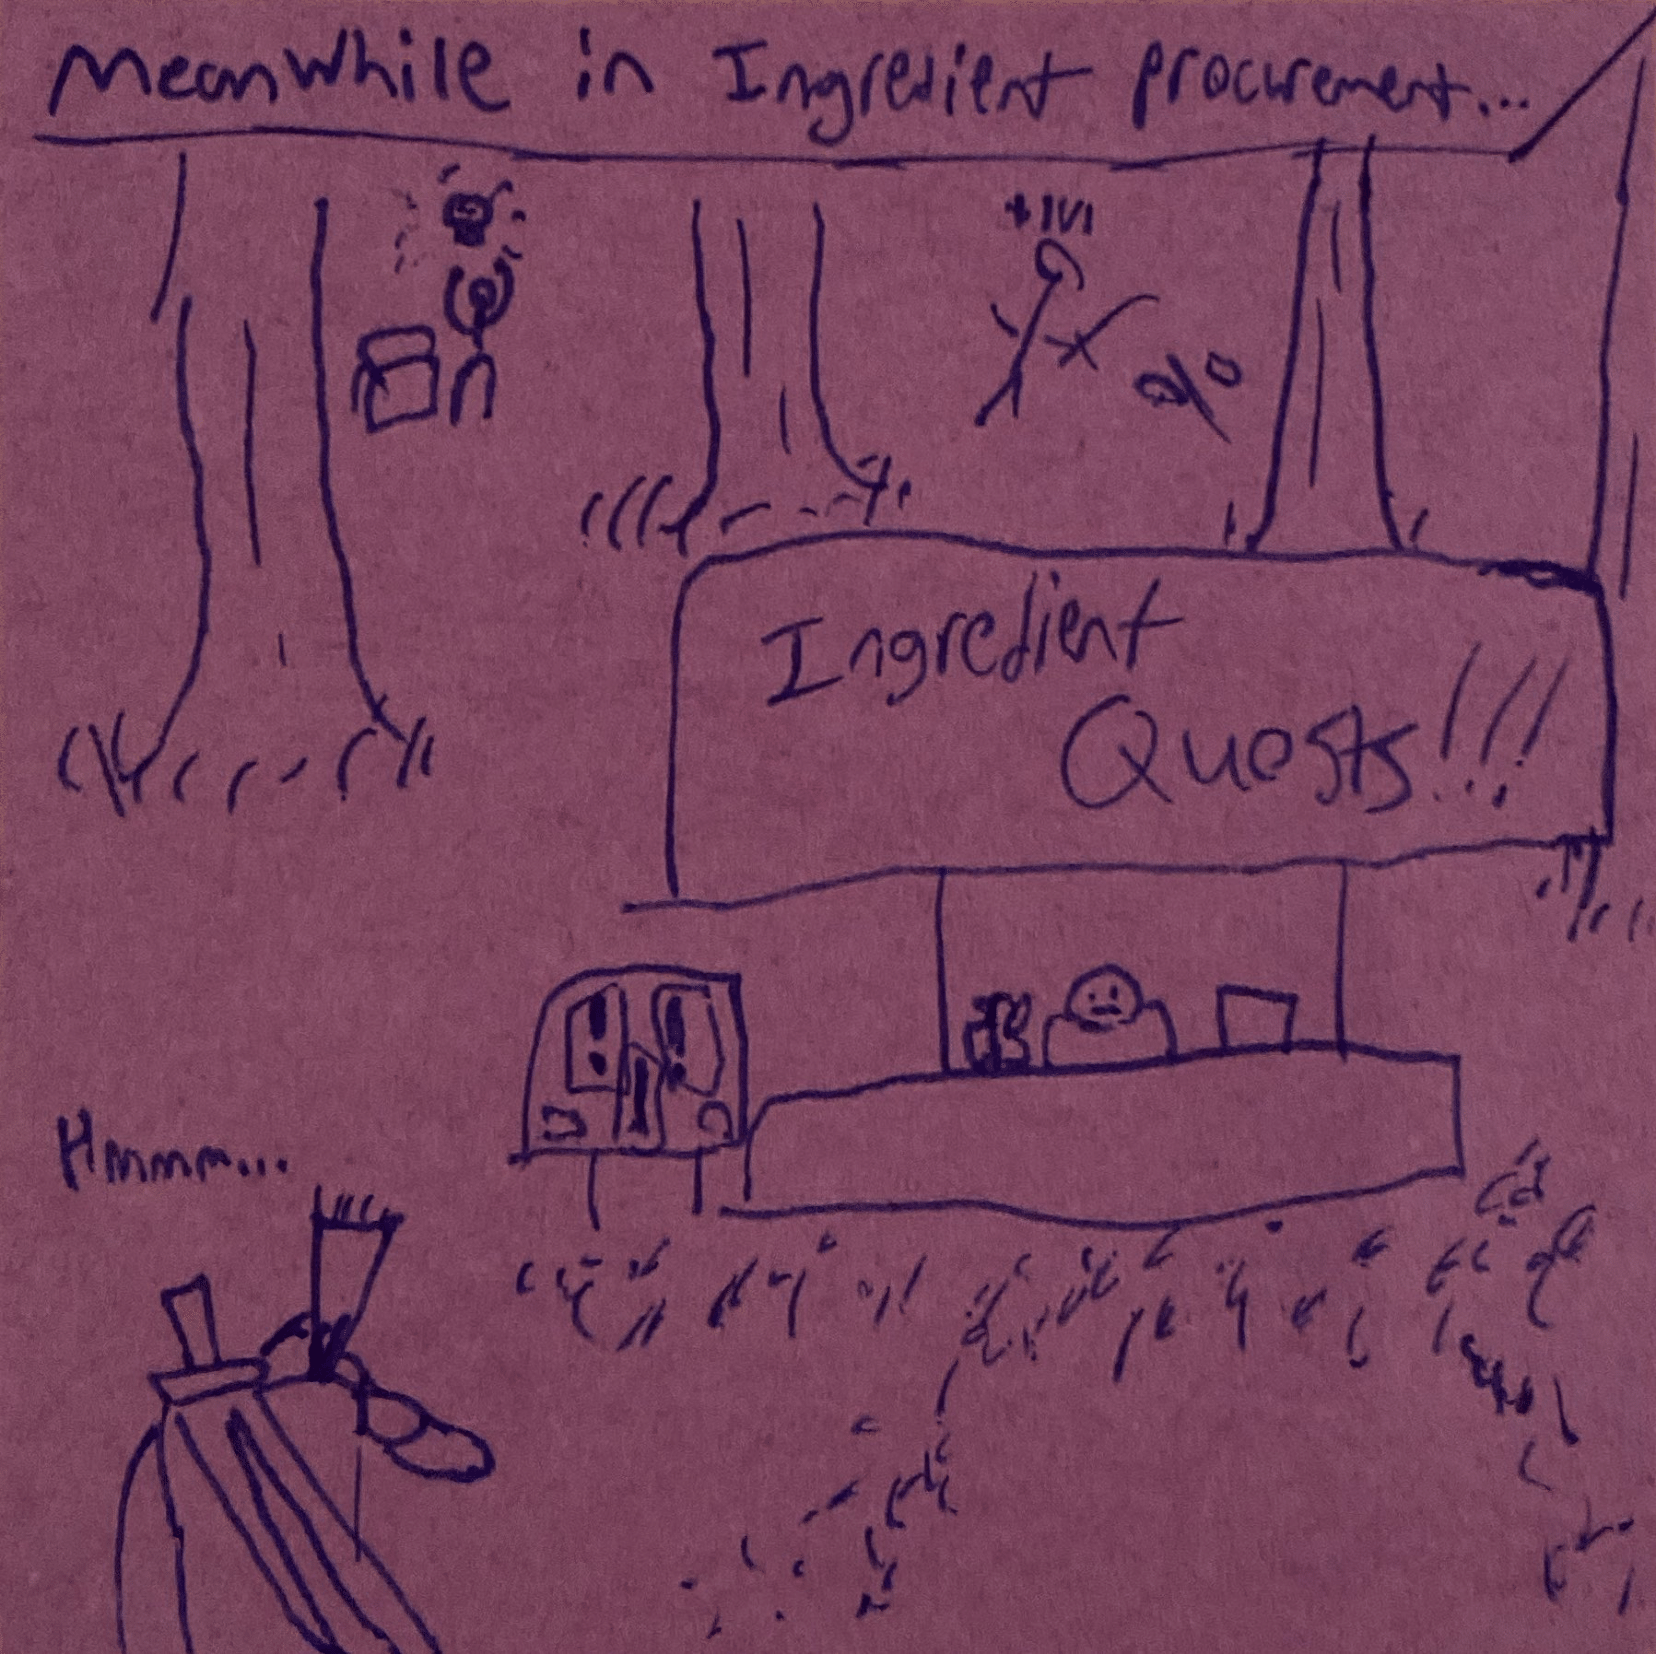 Meanwhile in Ingredient procurement...
+1V1
Ingredient
Quests!!!
! !
Hmmm...